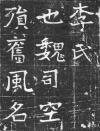 李氏
也魏司空
須舊風名